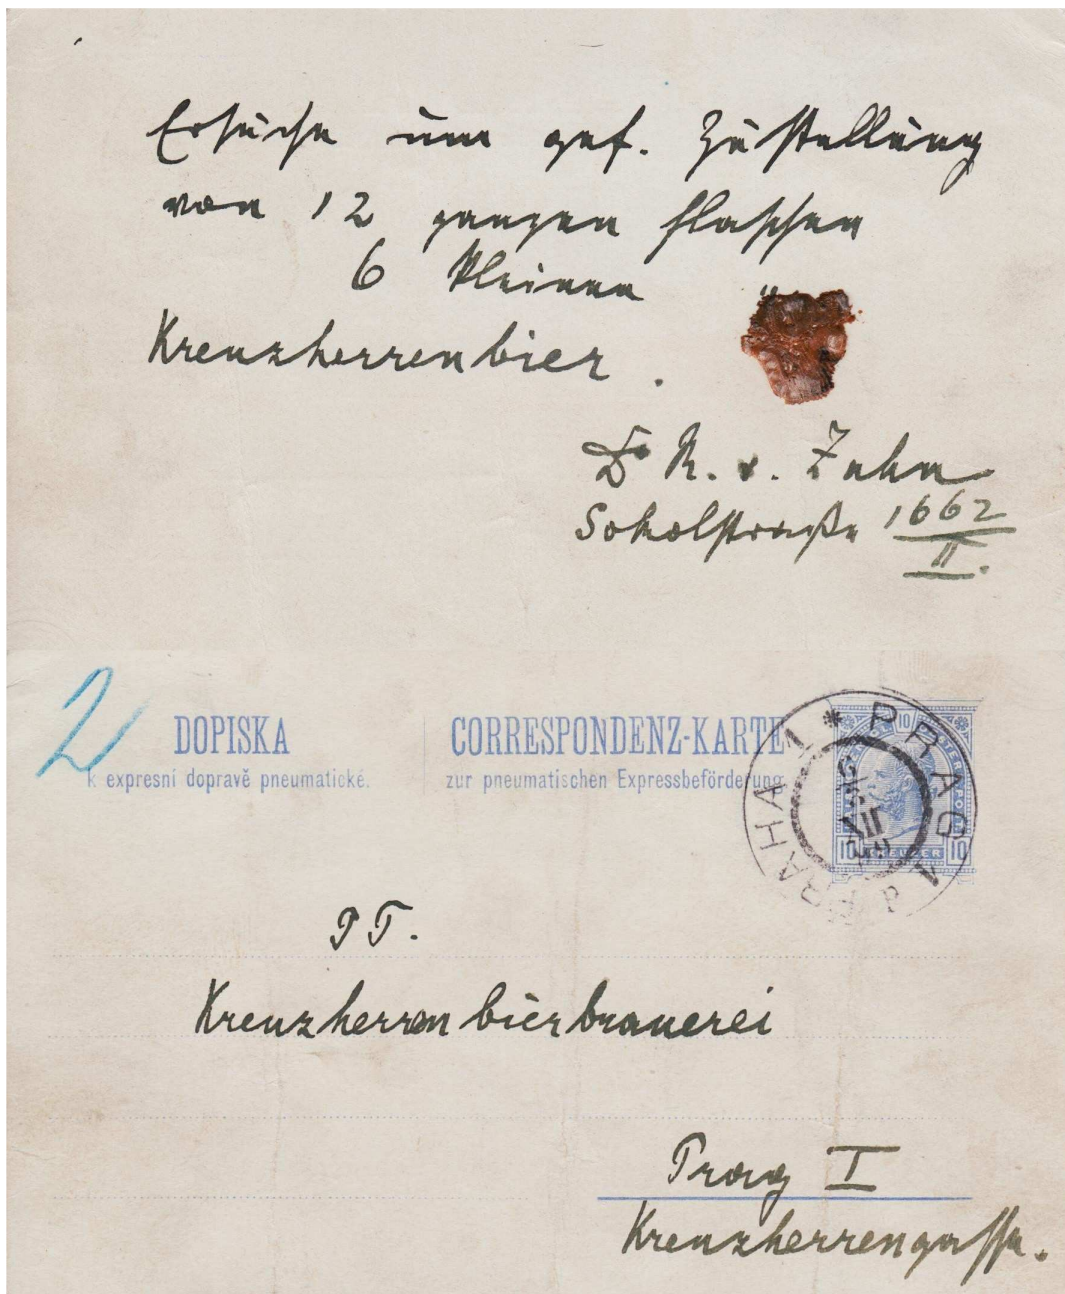 Ersuche um gef. Zustellung
von 12 ganzen Flaschen
6 kleinen "
Kreuzherrenbier.
Dr R. v. Zahn
Sokolstraße 1662
II.
2
DOPISKA
k expresní dopravě pneumatické.
CORRESPONDENZ-KARTE
zur pneumatischen Expressbeförderung.
PRAG 1
PRAHA 1
XII
10
10 KREUZER 10
PT.
Kreuzherrenbierbrauerei
Prag I
Kreuzherrengasse.